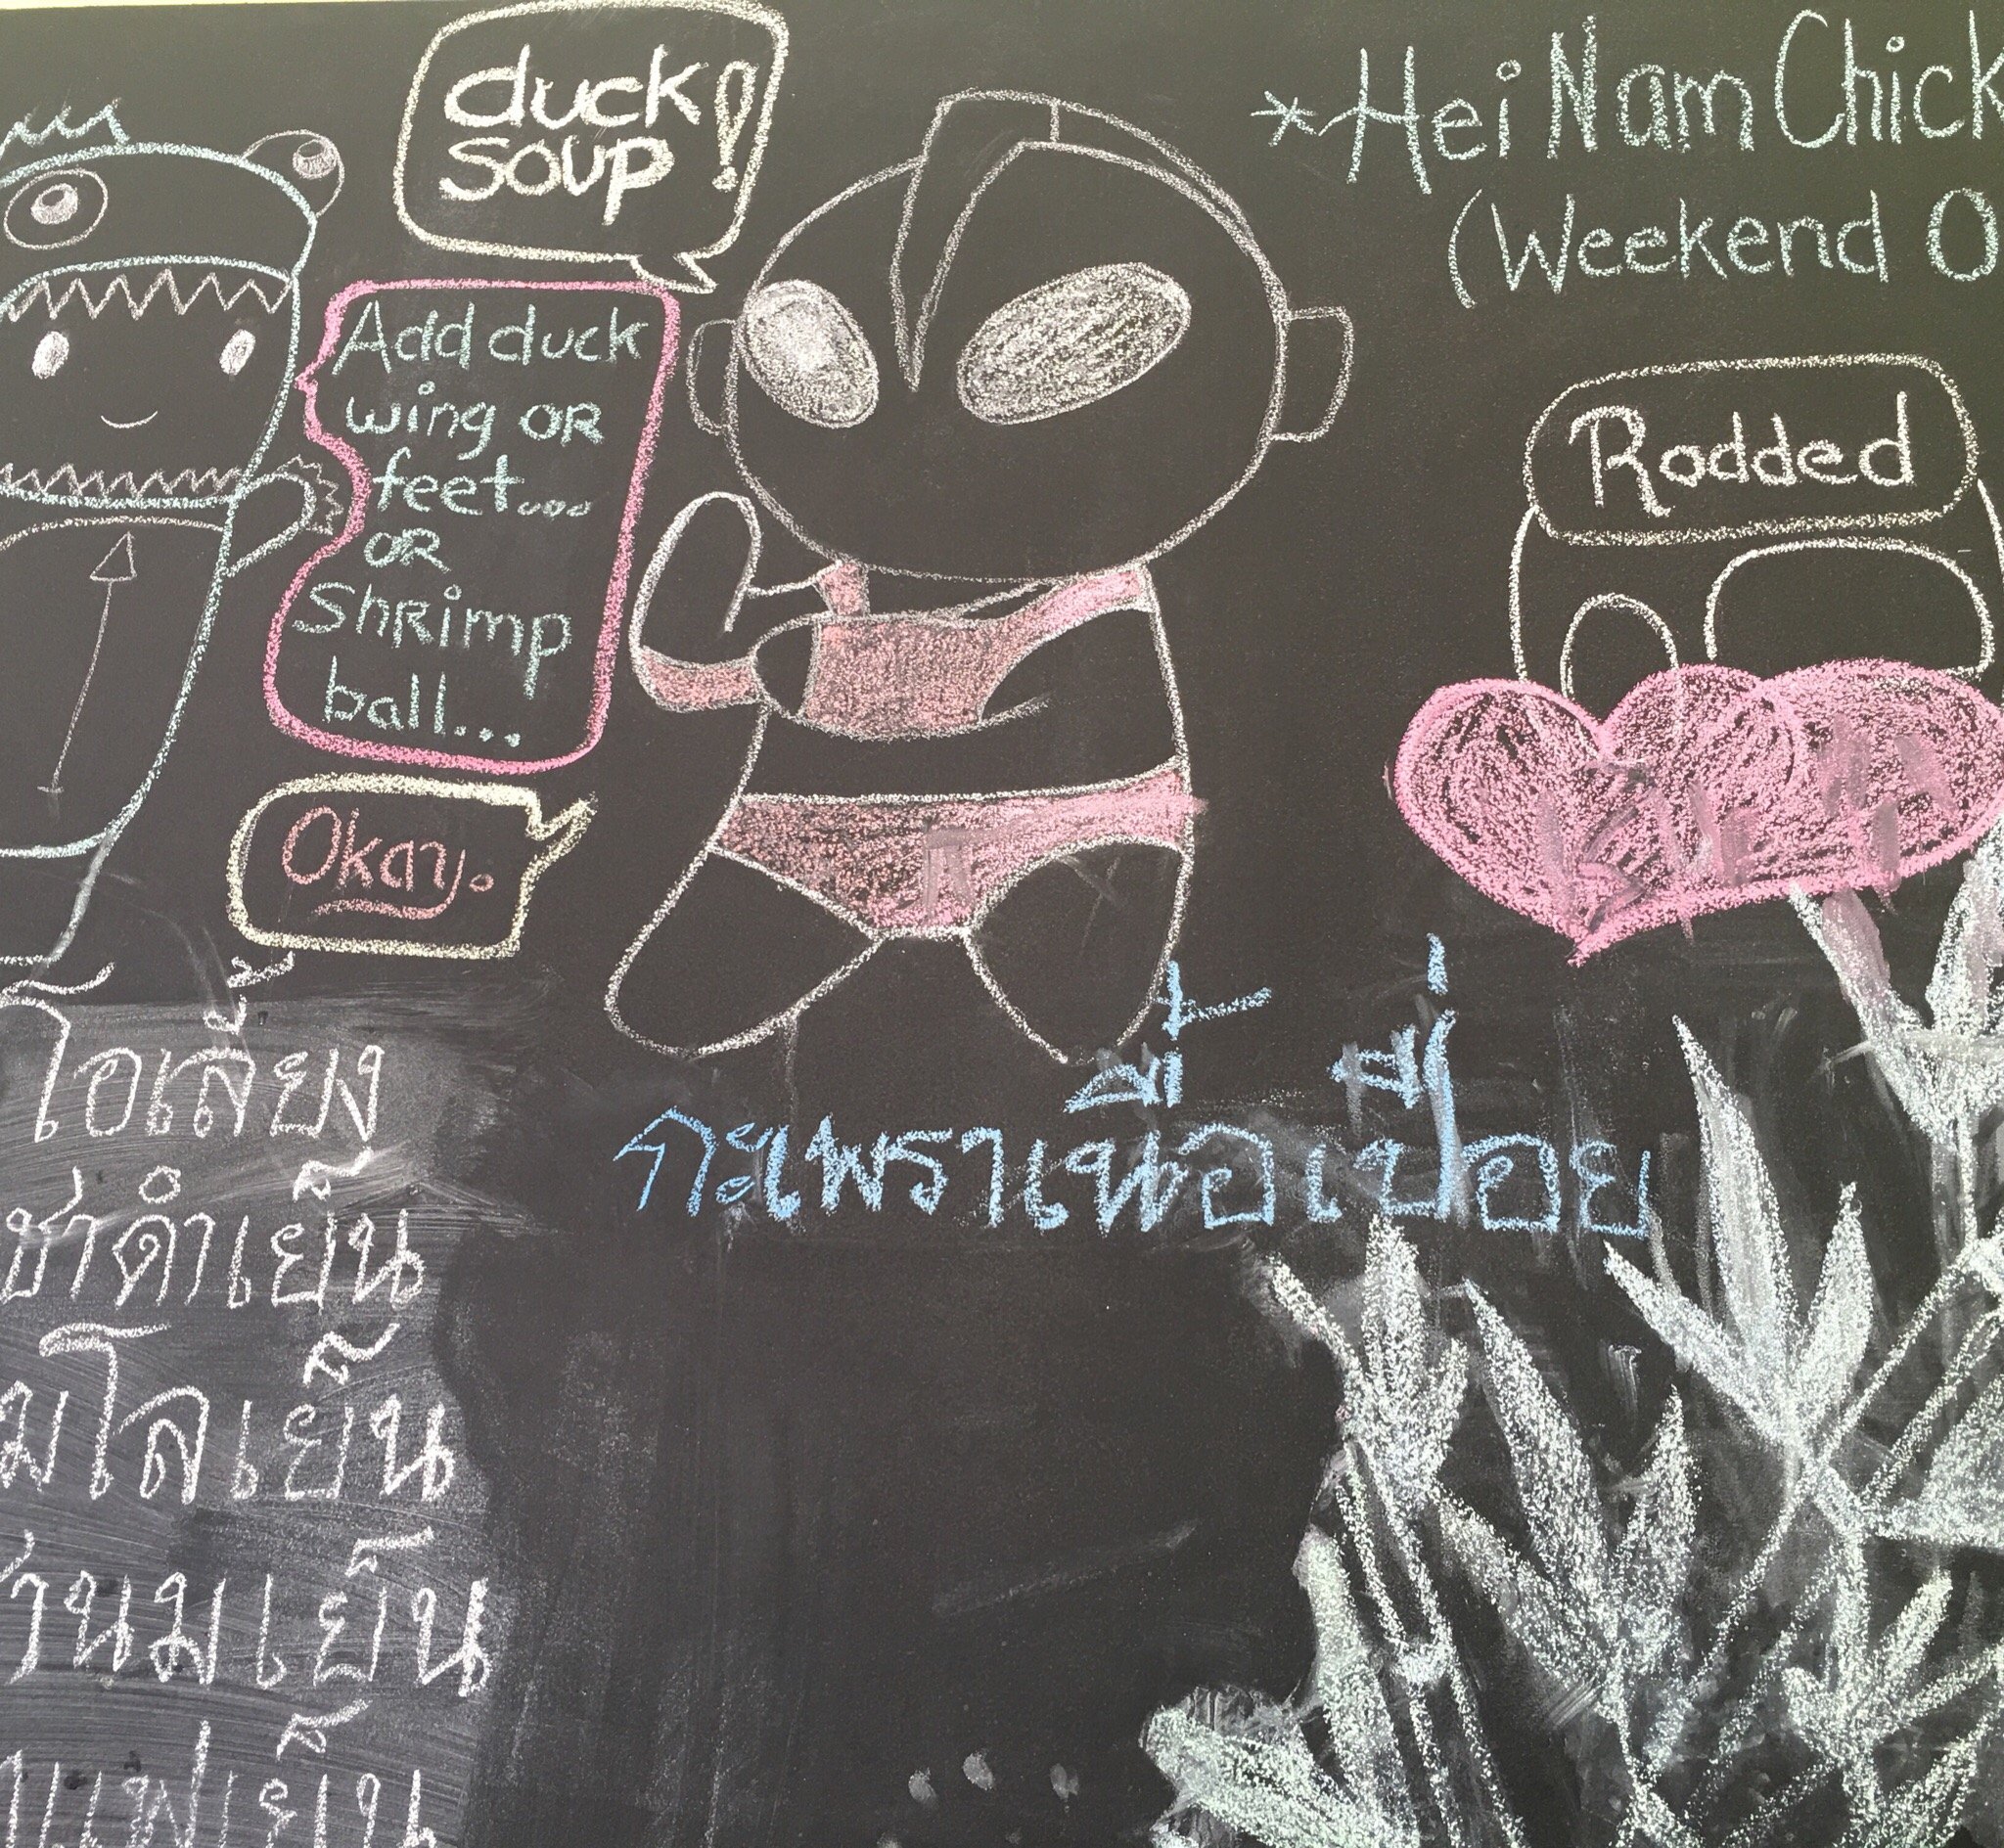 duck
soup!
Add duck
wing OR
feet...
OR
Shrimp
ball...
Okay.
*Hei Nam Chick
(Weekend O
Rodded
กะเพราเนื้อเปื่อย
โอเลี้ยง
ชาดำเย็น
มโลเย็น
านมเย็น
แฟเย็น